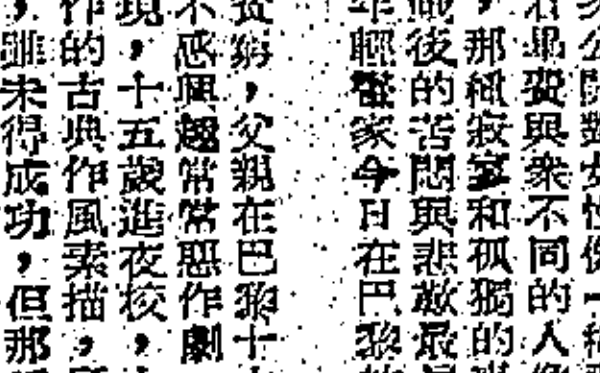 公開
若畢費與衆不同的人
，那種寂寞和孤獨的
後的苦悶與悲歡最
年輕畫家今日在巴黎
貧窮，父親在巴黎十
不感興趣常常惡作劇
現，十五歲進夜校，
作的古典作風素描，
，雖未得成功，但那